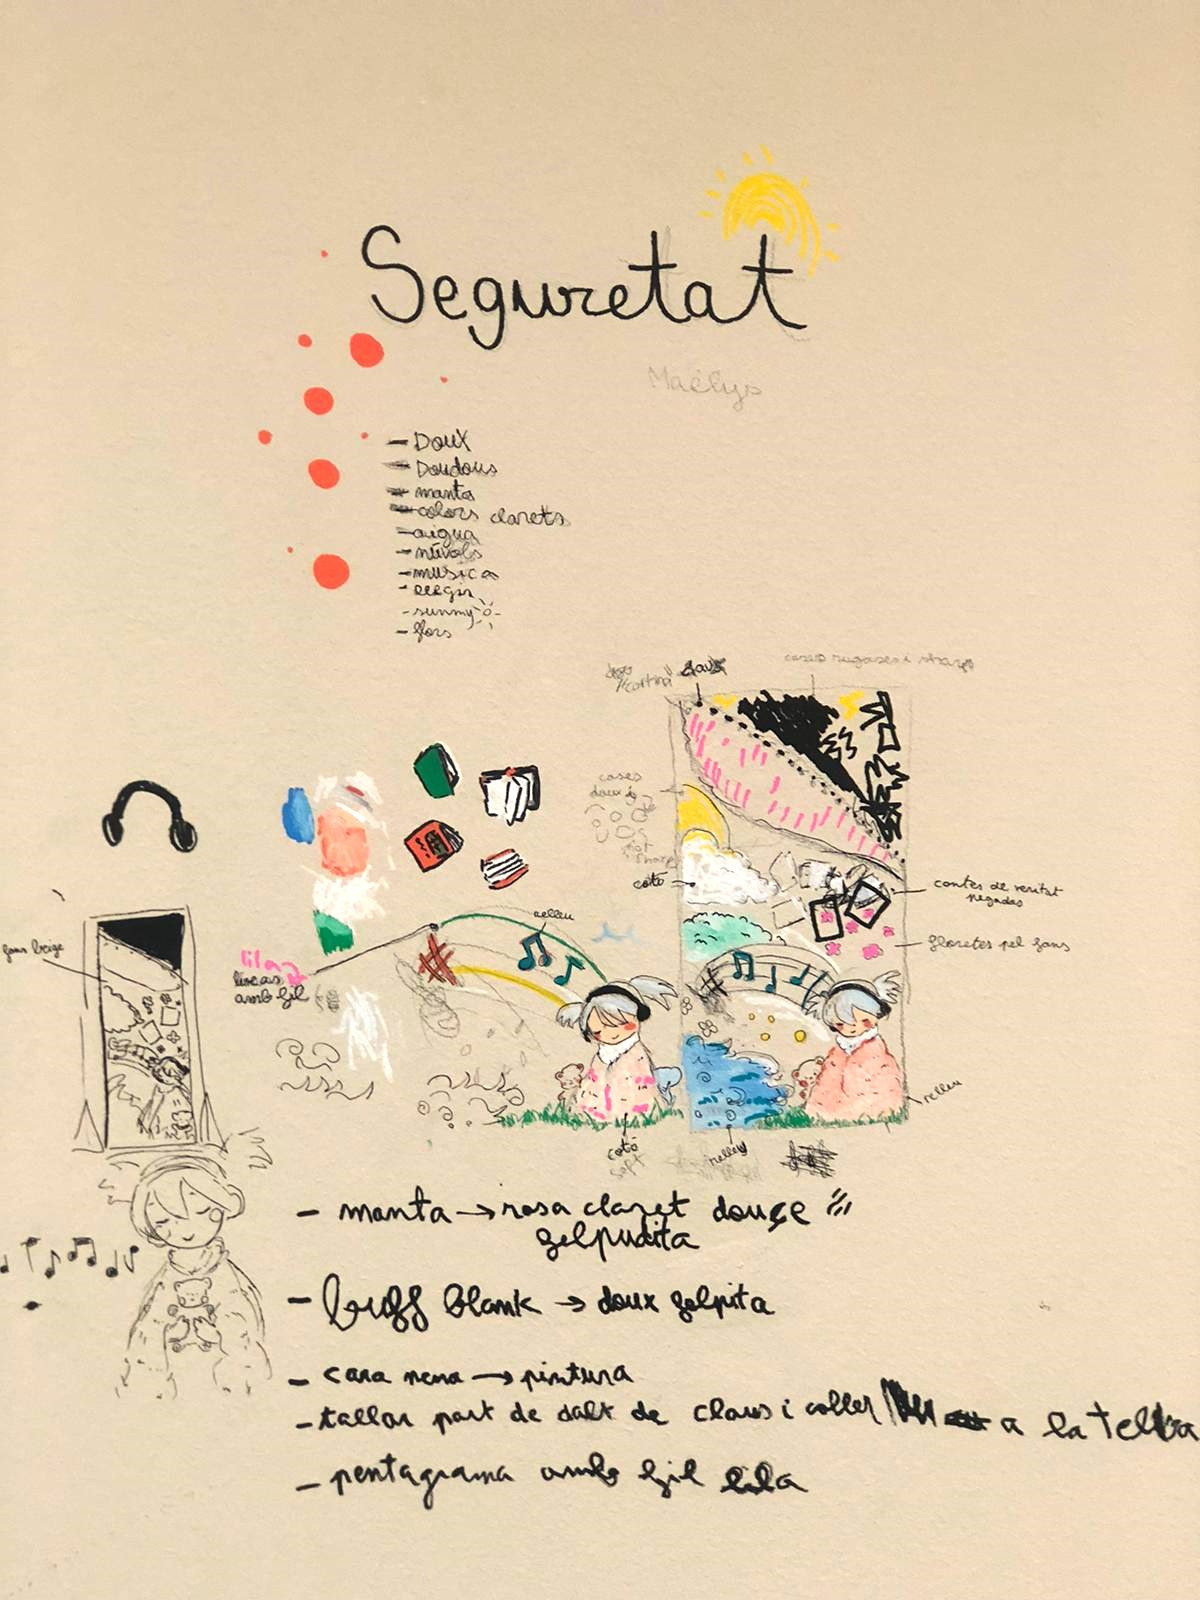 Seguretat
Maëlys
- Doux
- Doudous
- manta
- colors clarets
- aigua
- núvols
- musica
- llegir
- sunny
- flors
"cortina"
claus
coses rugoses i sharp
coses
doux
not
sharp
cotó
contes de veritat
pegados
floretes pel fons
relleu
fons beige
lila
lineas
amb fil
relleu
cotó
soft
relleu
- manta → rosa claret douçe
pelpudita
- buff blank → doux pelpita
- cara nena → pintura
- tallar part de dalt de claus i coller a la tella
- pentagrama amb fil lila